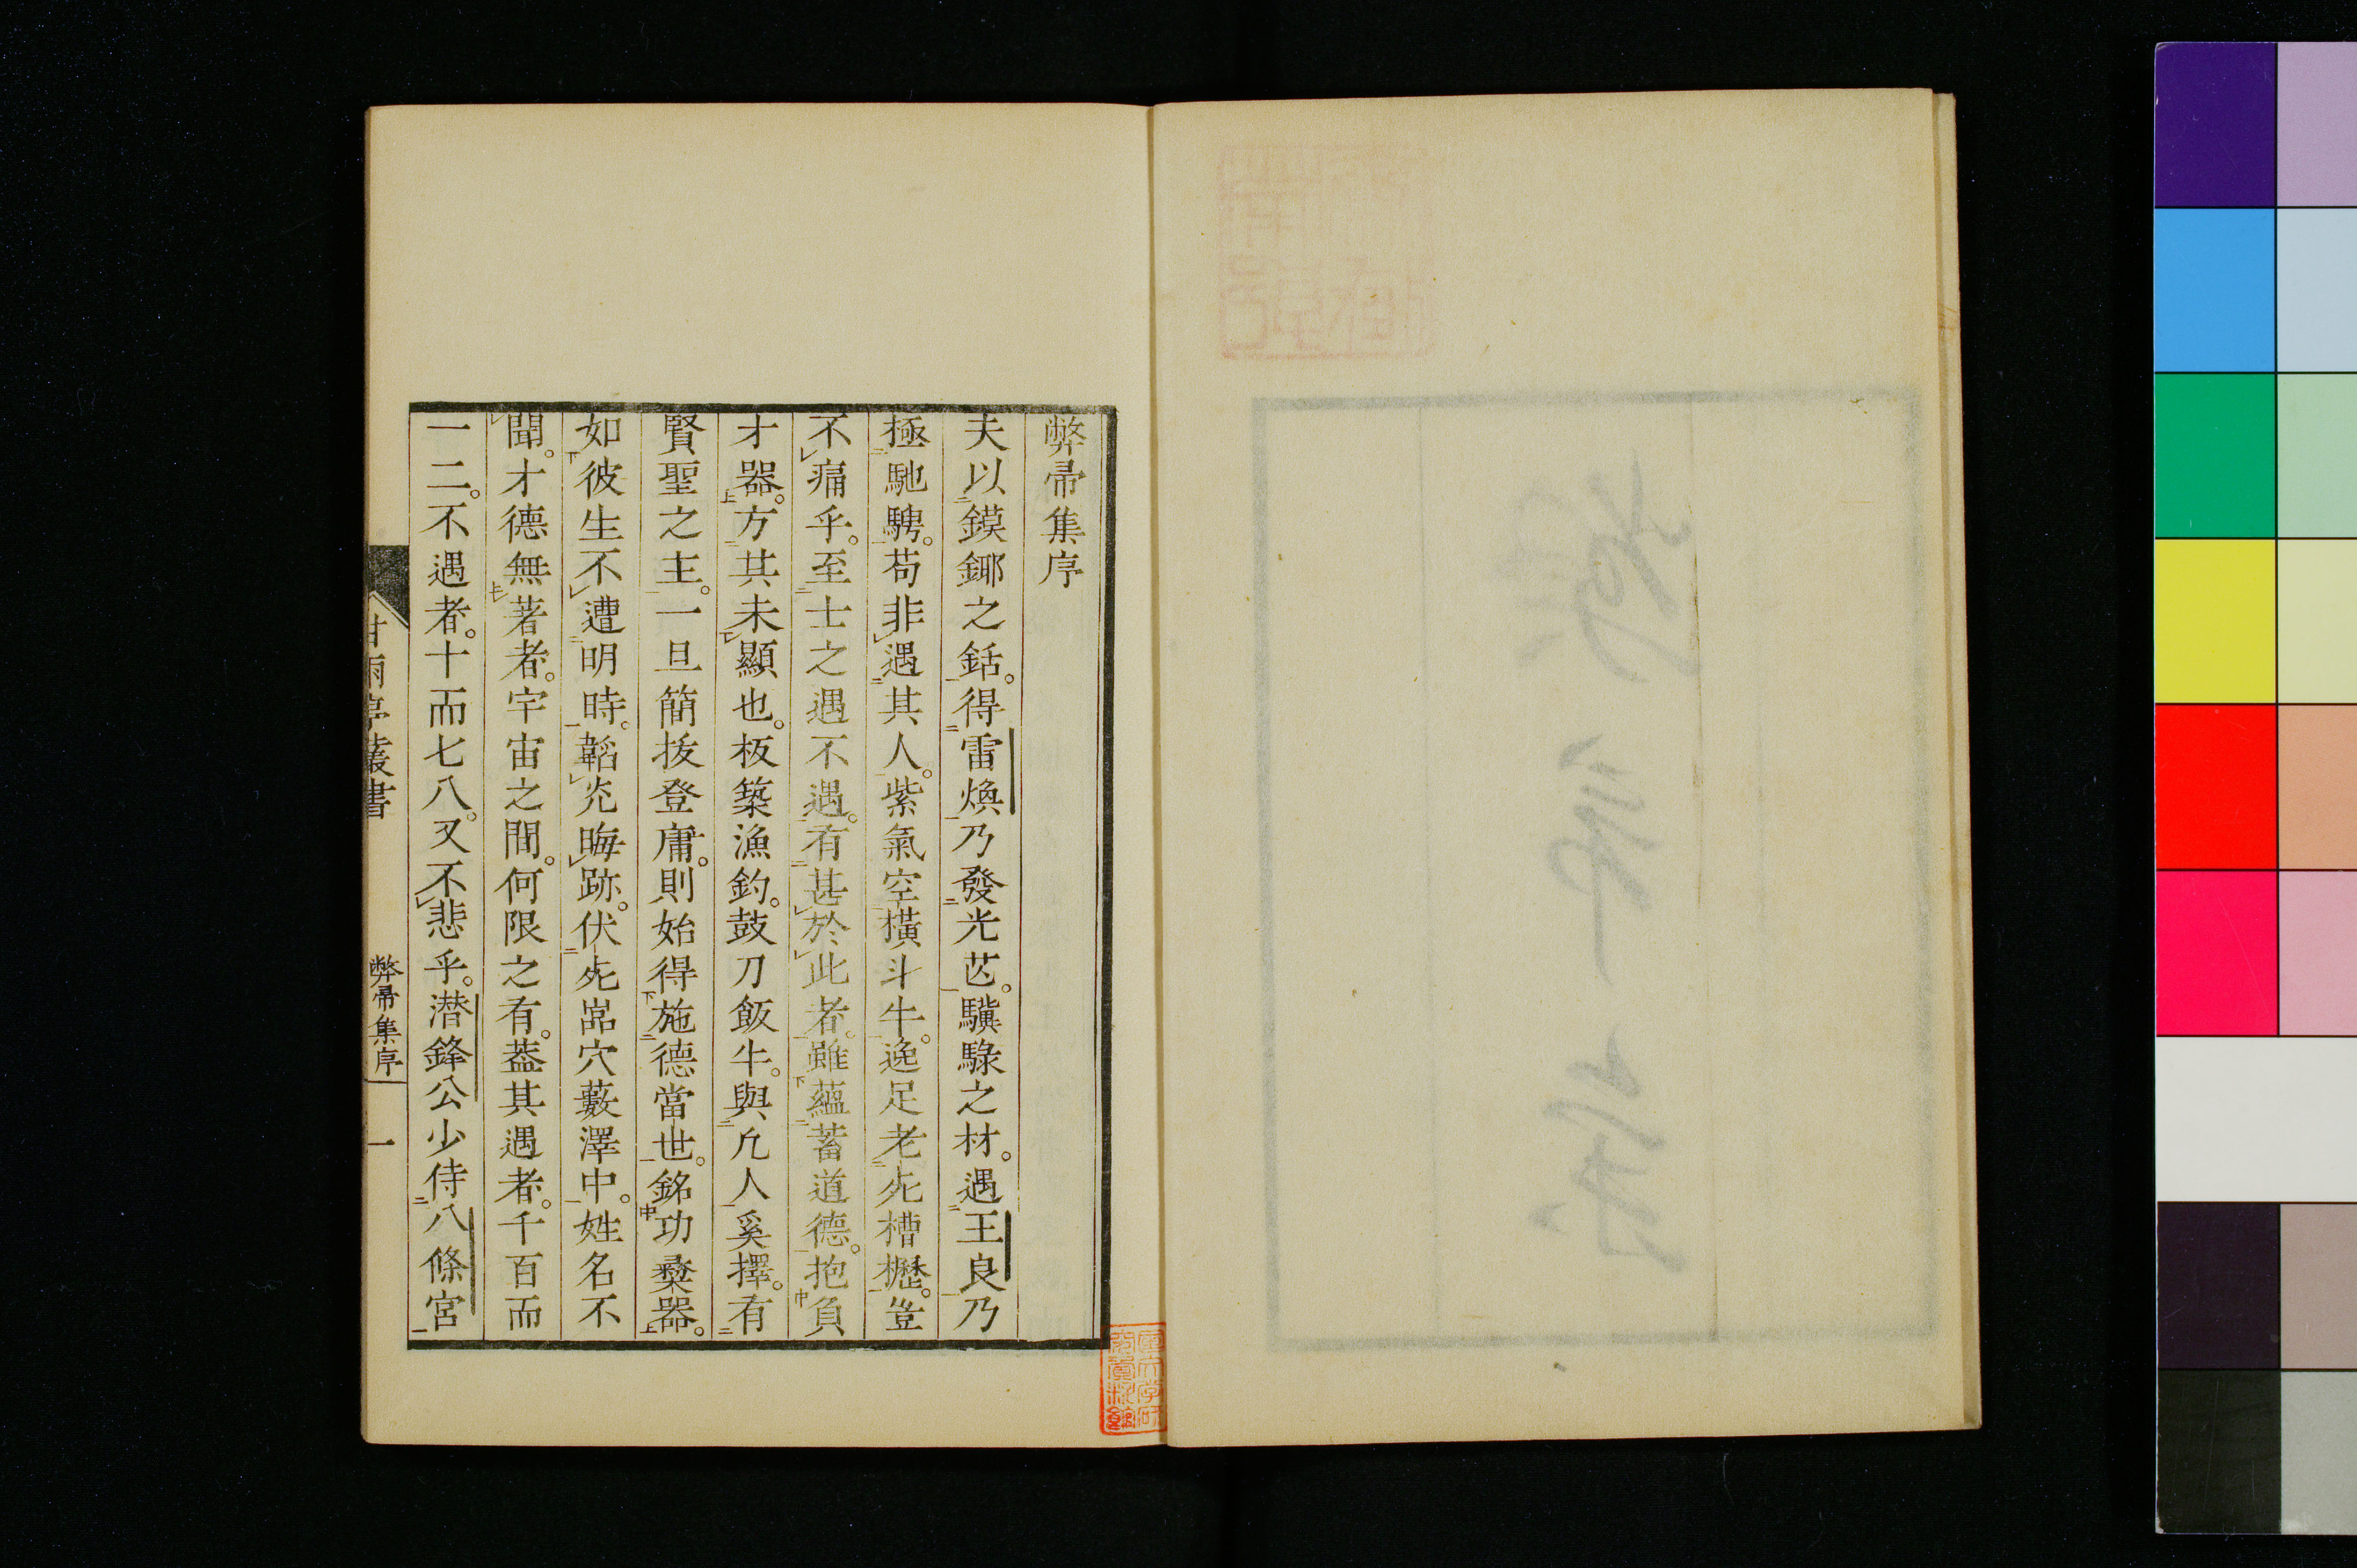 弊帚集序
夫以鏌鎁之銛。得雷煥乃發光芒。驥騄之材。遇王良乃
極馳騁。苟非遇其人。紫氣空橫斗牛。逸足老死槽櫪。豈
不痛乎。至士之遇不遇。有甚於此者。雖蘊蓄道德。抱負
才器。方其未顯也。板築漁釣。鼓刀飯牛。與凡人奚擇。有
賢聖之主。一旦簡拔登庸。則始得施德當世。銘功彜器。
如彼生不遭明時。韜光晦跡。伏死嵓穴藪澤中。姓名不
聞。才德無著者。宇宙之間。何限之有。蓋其遇者。千百而
一二。不遇者。十而七八。又不悲乎。潜鋒公少侍八條宮
甘雨亭叢書 弊帚集序 一